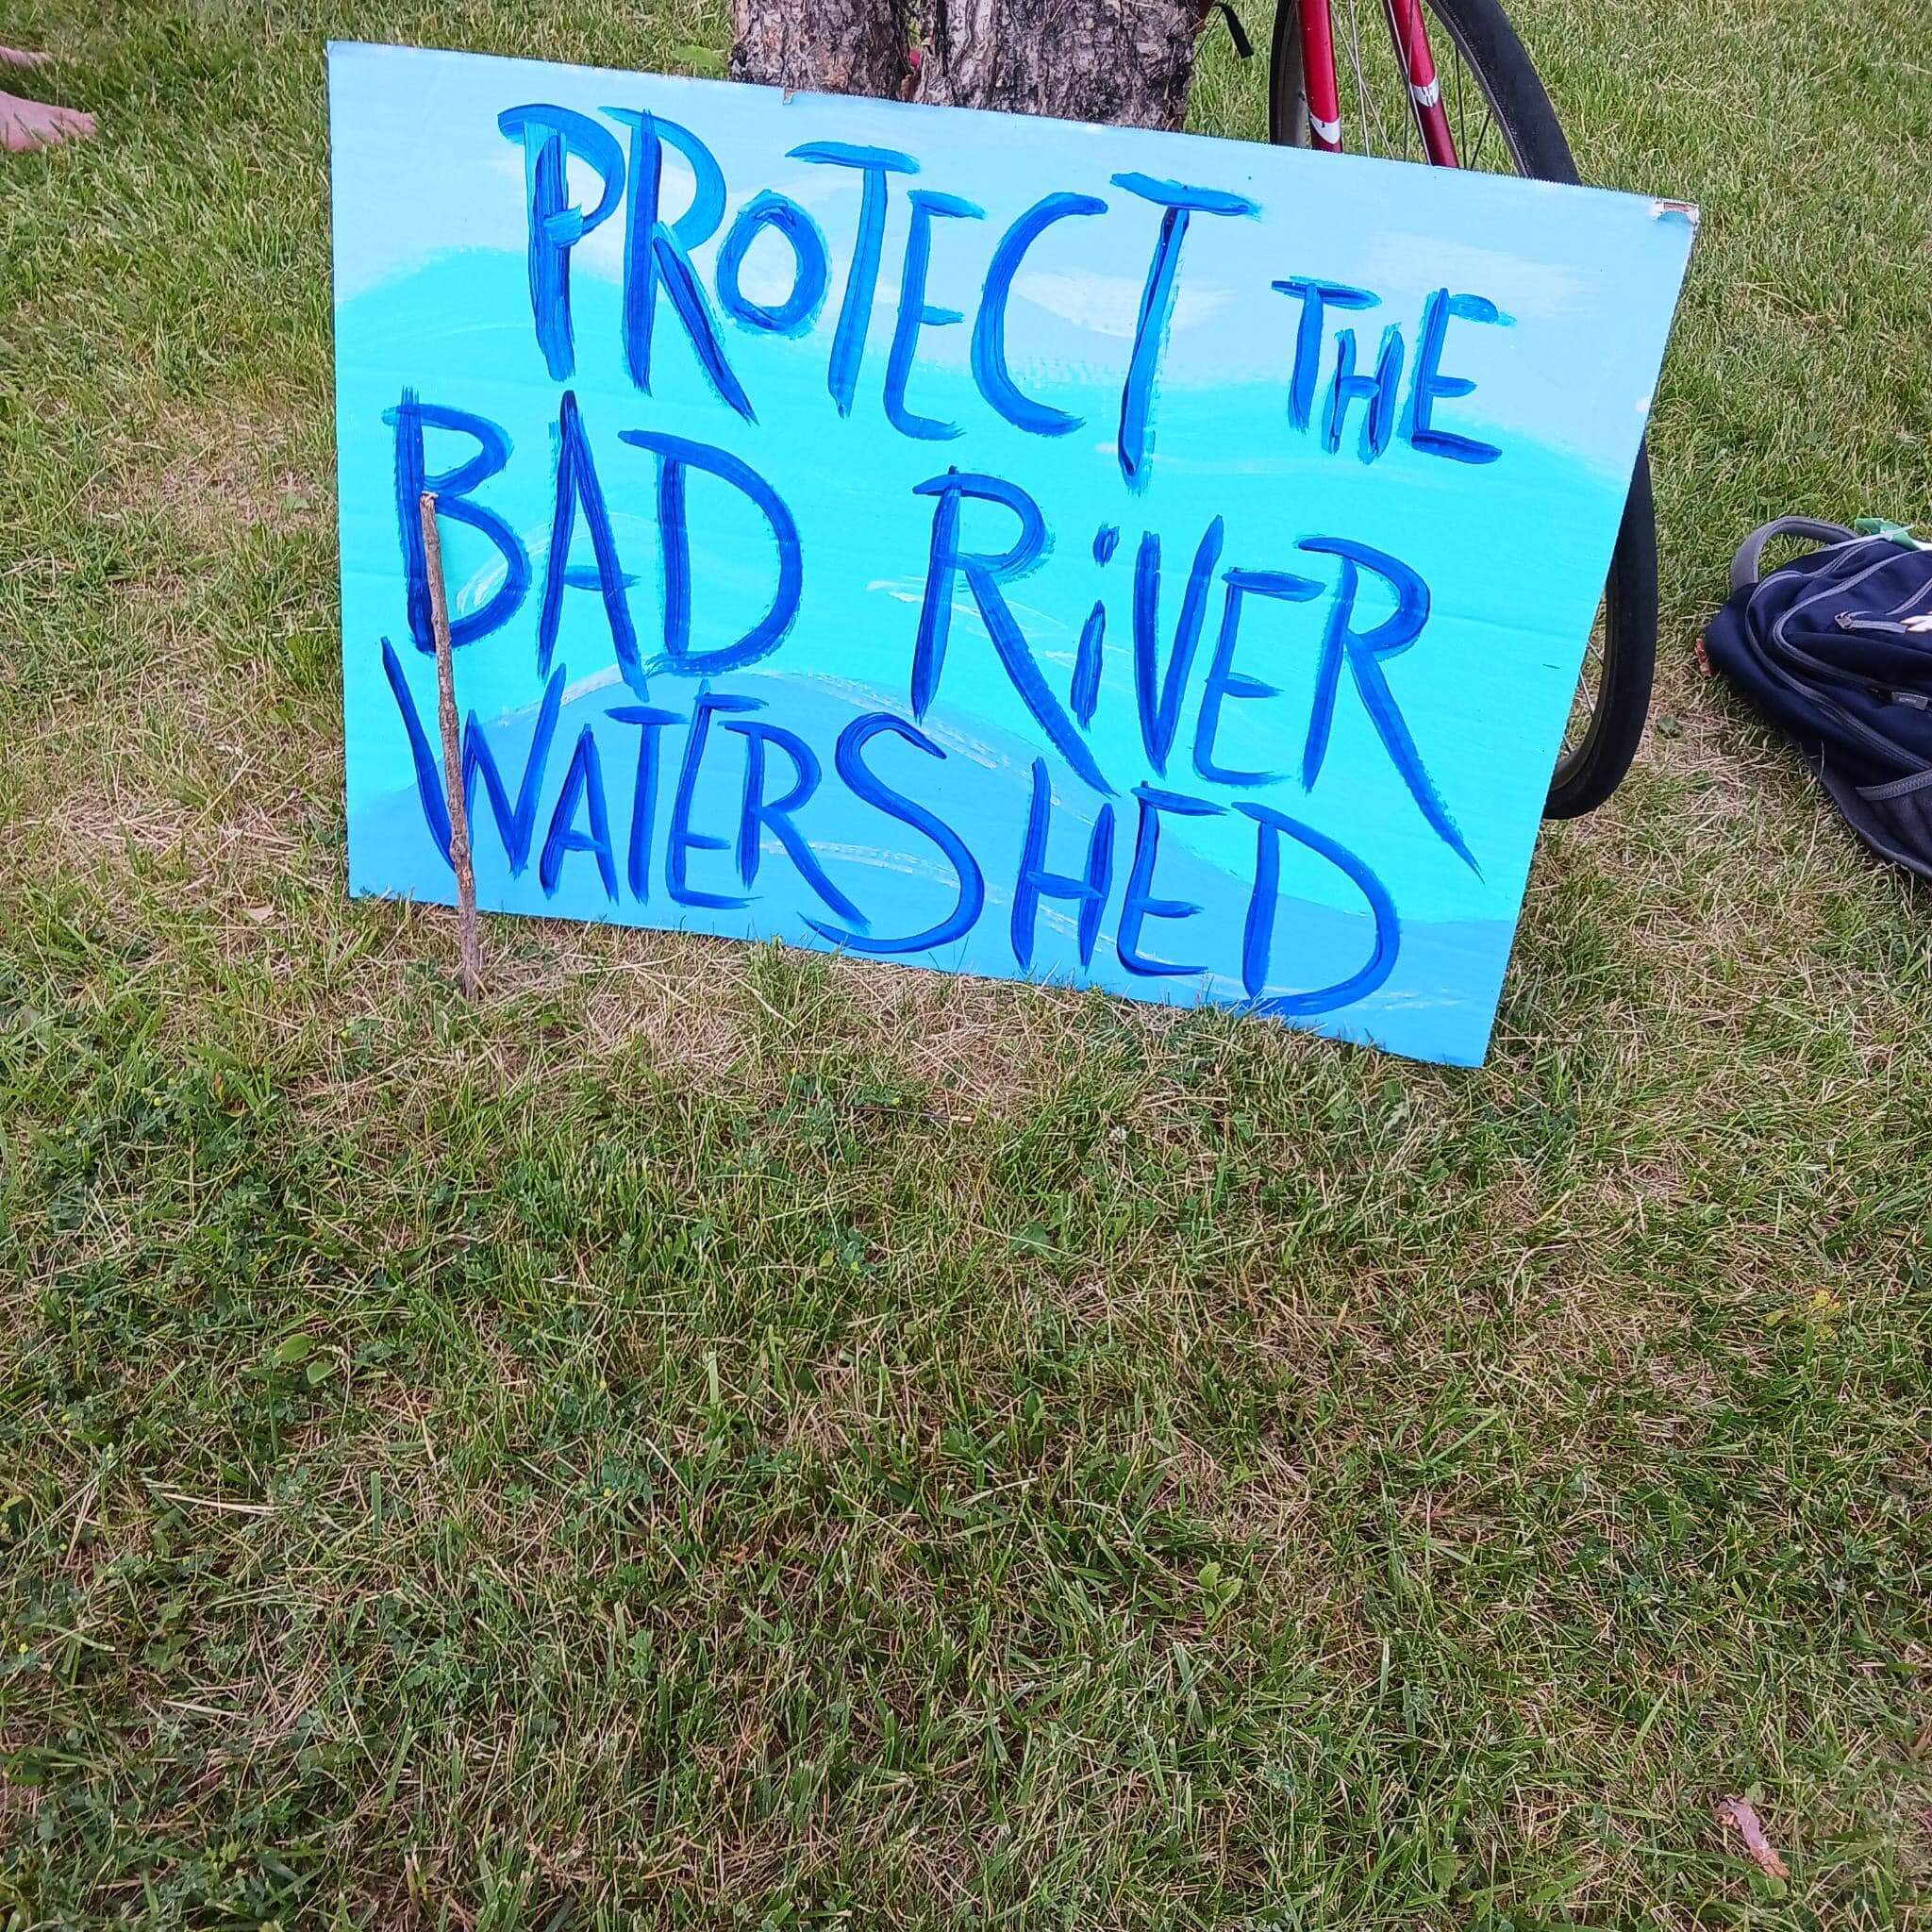 PROTECT THE
BAD RiVER
WATERSHED